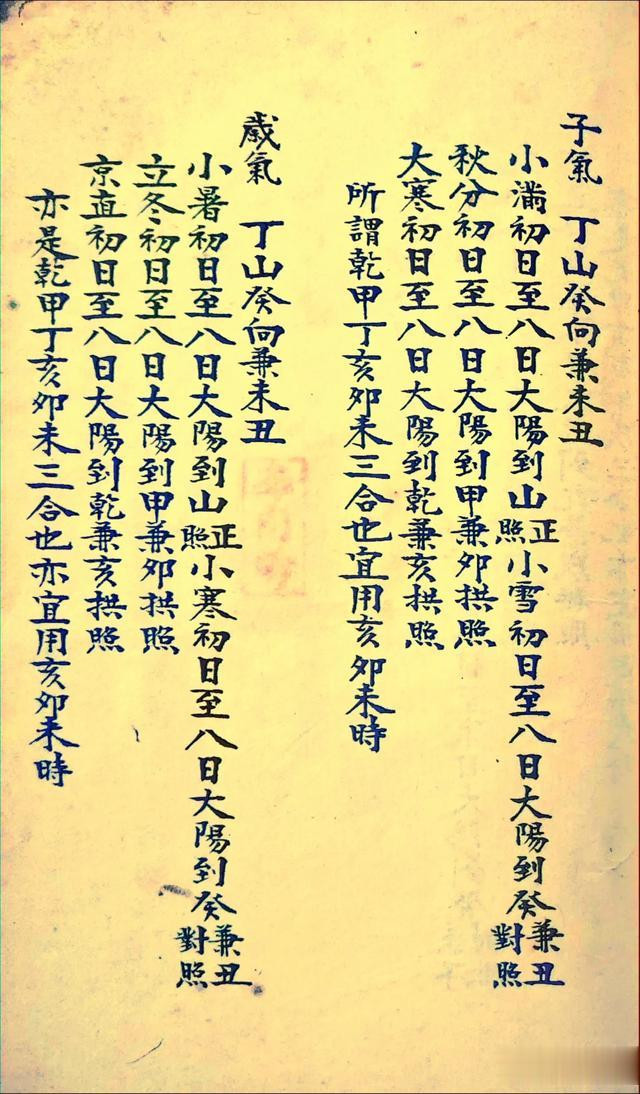 子氣　丁山癸向兼未丑
小滿初日至八日大陽到山正照小雪初日至八日大陽到癸兼丑對照
秋分初日至八日大陽到甲兼卯拱照
大寒初日至八日大陽到乾兼亥拱照
所謂乾甲丁亥卯未三合也宜用亥卯未時
歲氣　丁山癸向兼未丑
小暑初日至八日大陽到山正照小寒初日至八日大陽到癸兼丑對照
立冬初日至八日大陽到甲兼卯拱照
京直初日至八日大陽到乾兼亥拱照
亦是乾甲丁亥卯未三合也亦宜用亥卯未時